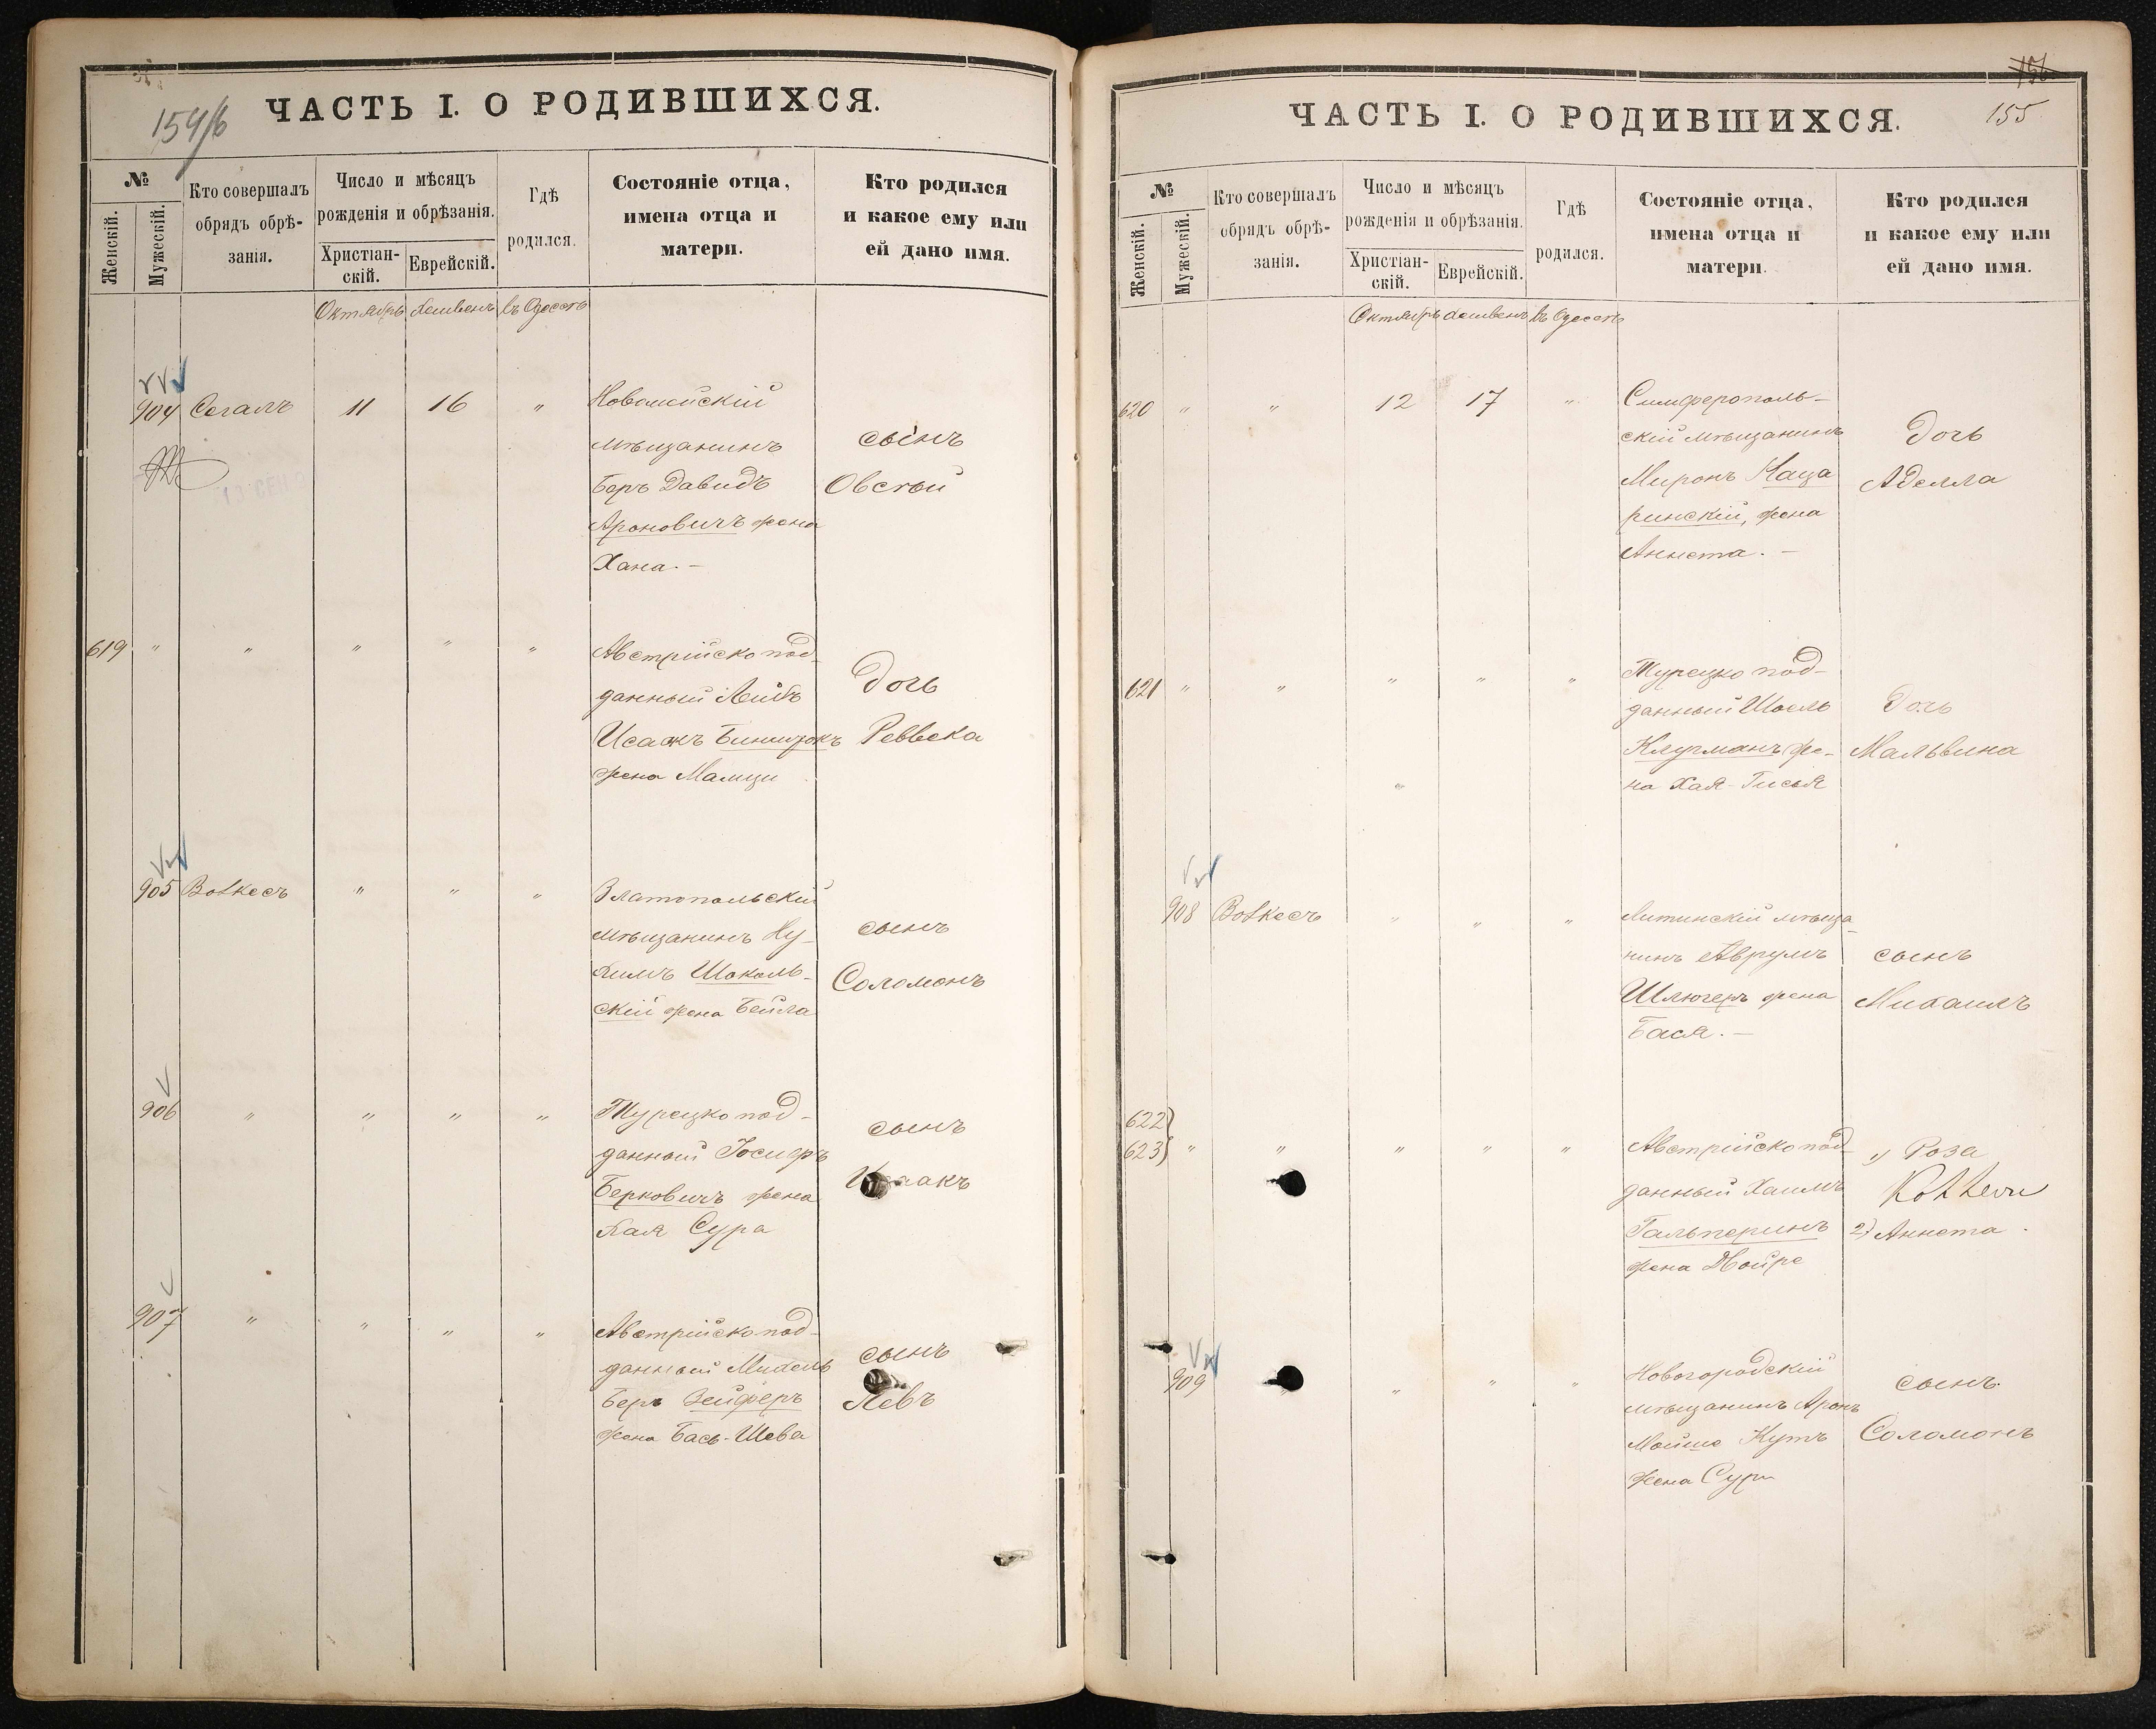 154/б
ЧАСТЬ I. О РОДИВШИХСЯ.
№
Женскій.
Мужескій.
Кто совершалъ
обрядъ обрѣ-
занія.
Число и мѣсяцъ
рожденія и обрѣзанія.
Христіан-
скій.
Еврейскій.
Гдѣ
родился.
Состояніе отца,
имена отца и
матери.
Кто родился
и какое ему или
ей дано имя.
Октябрь Хешвенъ въ Одессѣ
904 Сегалъ 11 16 "
мѣщанинъ
Беръ Давидъ
Ароновичъ жена
Хана. –
сынъ
Овсѣй
619 " " " " "
Австрійско под-
данный Лейбъ
Исаакъ
жена
дочь
Реввека
905 Воткесъ " " "
Златопольскій
мѣщанинъ Ну-
химъ Шоколь-
скій жена Бейла
сынъ
Соломонъ
906 " " " "
Турецко под-
данный Іосифъ
Берковичъ жена
Хая Сура
сынъ
907 " " " "
Австрійско под-
данный Михель
Беръ Зейферъ
жена Бась-Шева
сынъ
Левъ
155
ЧАСТЬ I. О РОДИВШИХСЯ.
№
Женскій.
Мужескій.
Кто совершалъ
обрядъ обрѣ-
занія.
Число и мѣсяцъ
рожденія и обрѣзанія.
Христіан-
скій.
Еврейскій.
Гдѣ
родился.
Состояніе отца,
имена отца и
матери.
Кто родился
и какое ему или
ей дано имя.
Октябрь Хешвенъ въ Одессѣ
620 " " 12 17 "
Симферополь-
скій мѣщанинъ
Миронъ Маца
ринскій, жена
Аннета. –
Дочь
Аделла
621 " " " " "
Турецко под-
данный Шоель
Клугманъ же-
на Хая-Гисья
Дочь
Мальвина
908 Воткесъ " " "
Литинскій мѣща-
нинъ Аврумъ
Шлюгеръ жена
Бася. –
сынъ
Михаилъ
622)
623) " " " " "
Австрійско под-
данный Хаимъ
Гальперинъ
жена Двойре
1) Роза
2) Аннета.
909 " " "
Новогородскій
мѣщанинъ Аронъ
Мойше Кутъ
жена Сура
сынъ
Соломонъ